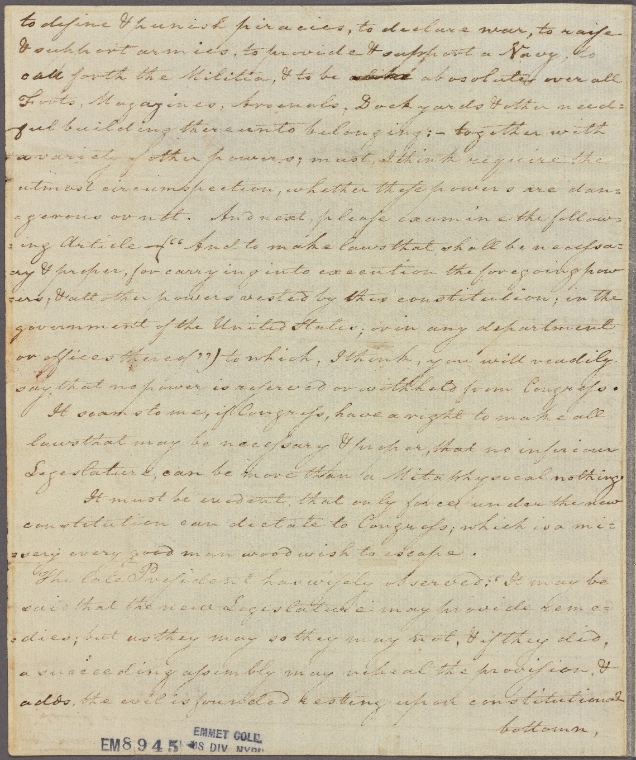 to define & punish piracies, to declare war, to raise
& support armies, to provide & support a Navy, to
call forth the Militia, & to be absolute over all
Forts, Magazines, Arsenals, Dockyards & other need=
ful building thereunto belonging:- together with
a variety of other powers; must, I think require the
utmost circumspection, whether these powers are dan=
gerous or not. And next, please examine the follow=
ing Article - (" And to make laws that shall be necessa=
ry & proper, for carrying into execution the foregoing pow
=ers, & all other powers vested by this constitution; in the
government of the United States; or in any department
or offices thereof") to which, I think, you will readily
say, that no power is reserved or withheld from Congress.
It seams to me, if Congress, have a right to make all
laws that may be necessary & proper, that no inferiour
Legeslature, can be more than a Mitaphysecal nothing
It must be evedent, that only force, under the new
constitution can dictate to Congress; which is a mi=
sery every good man wood wish to escape.
The late President has wisely observed; It may be
said that the new Legeslature may provide reme=
dies; but as they may so they may not, & if they did,
a succeeding assembly may repeal the provision, &
adds, the evil is founded resting upon constitutional
bottown,
EMMET COLL.
EM8945 MS DIV. NYPL